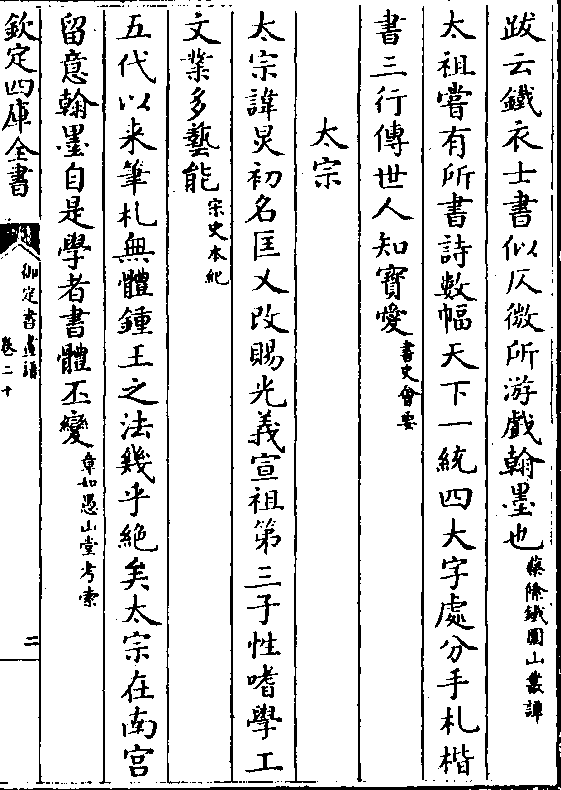 跋云鐵衣士書似仄微所游戲翰墨也蔡絛鐵圍山叢譚
太祖嘗有所書詩數幅天下一統四大字處分手札楷
書三行傳世人知寶愛書史會要
太宗
太宗諱炅初名匡乂改賜光義宣祖第三子性嗜學工
文業多藝能宋史本紀
五代以来筆札無體鍾王之法幾乎絶矣太宗在南宫
留意翰墨自是學者書體丕變章如愚山堂考索
欽定四庫全書
御定書畫譜
卷二十
二